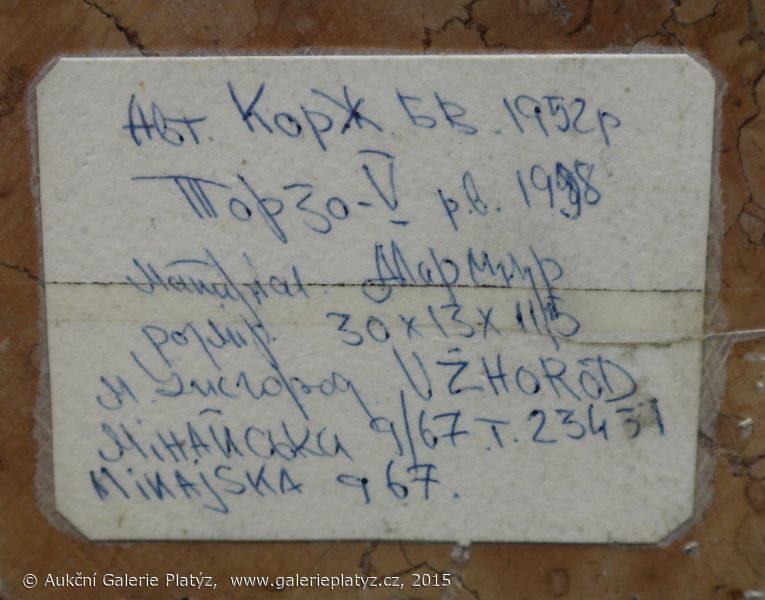 Авт. Корж Б.В. 1952р
Торзо-V р.в. 1998
Матеріал Мармур
розмір 30х13х11,5
м. Ужгород UŽHOROD
Мінайська 9/67 т. 23451
MINAJSKA 9 67.
© Aukční Galerie Platýz, www.galerieplatyz.cz, 2015